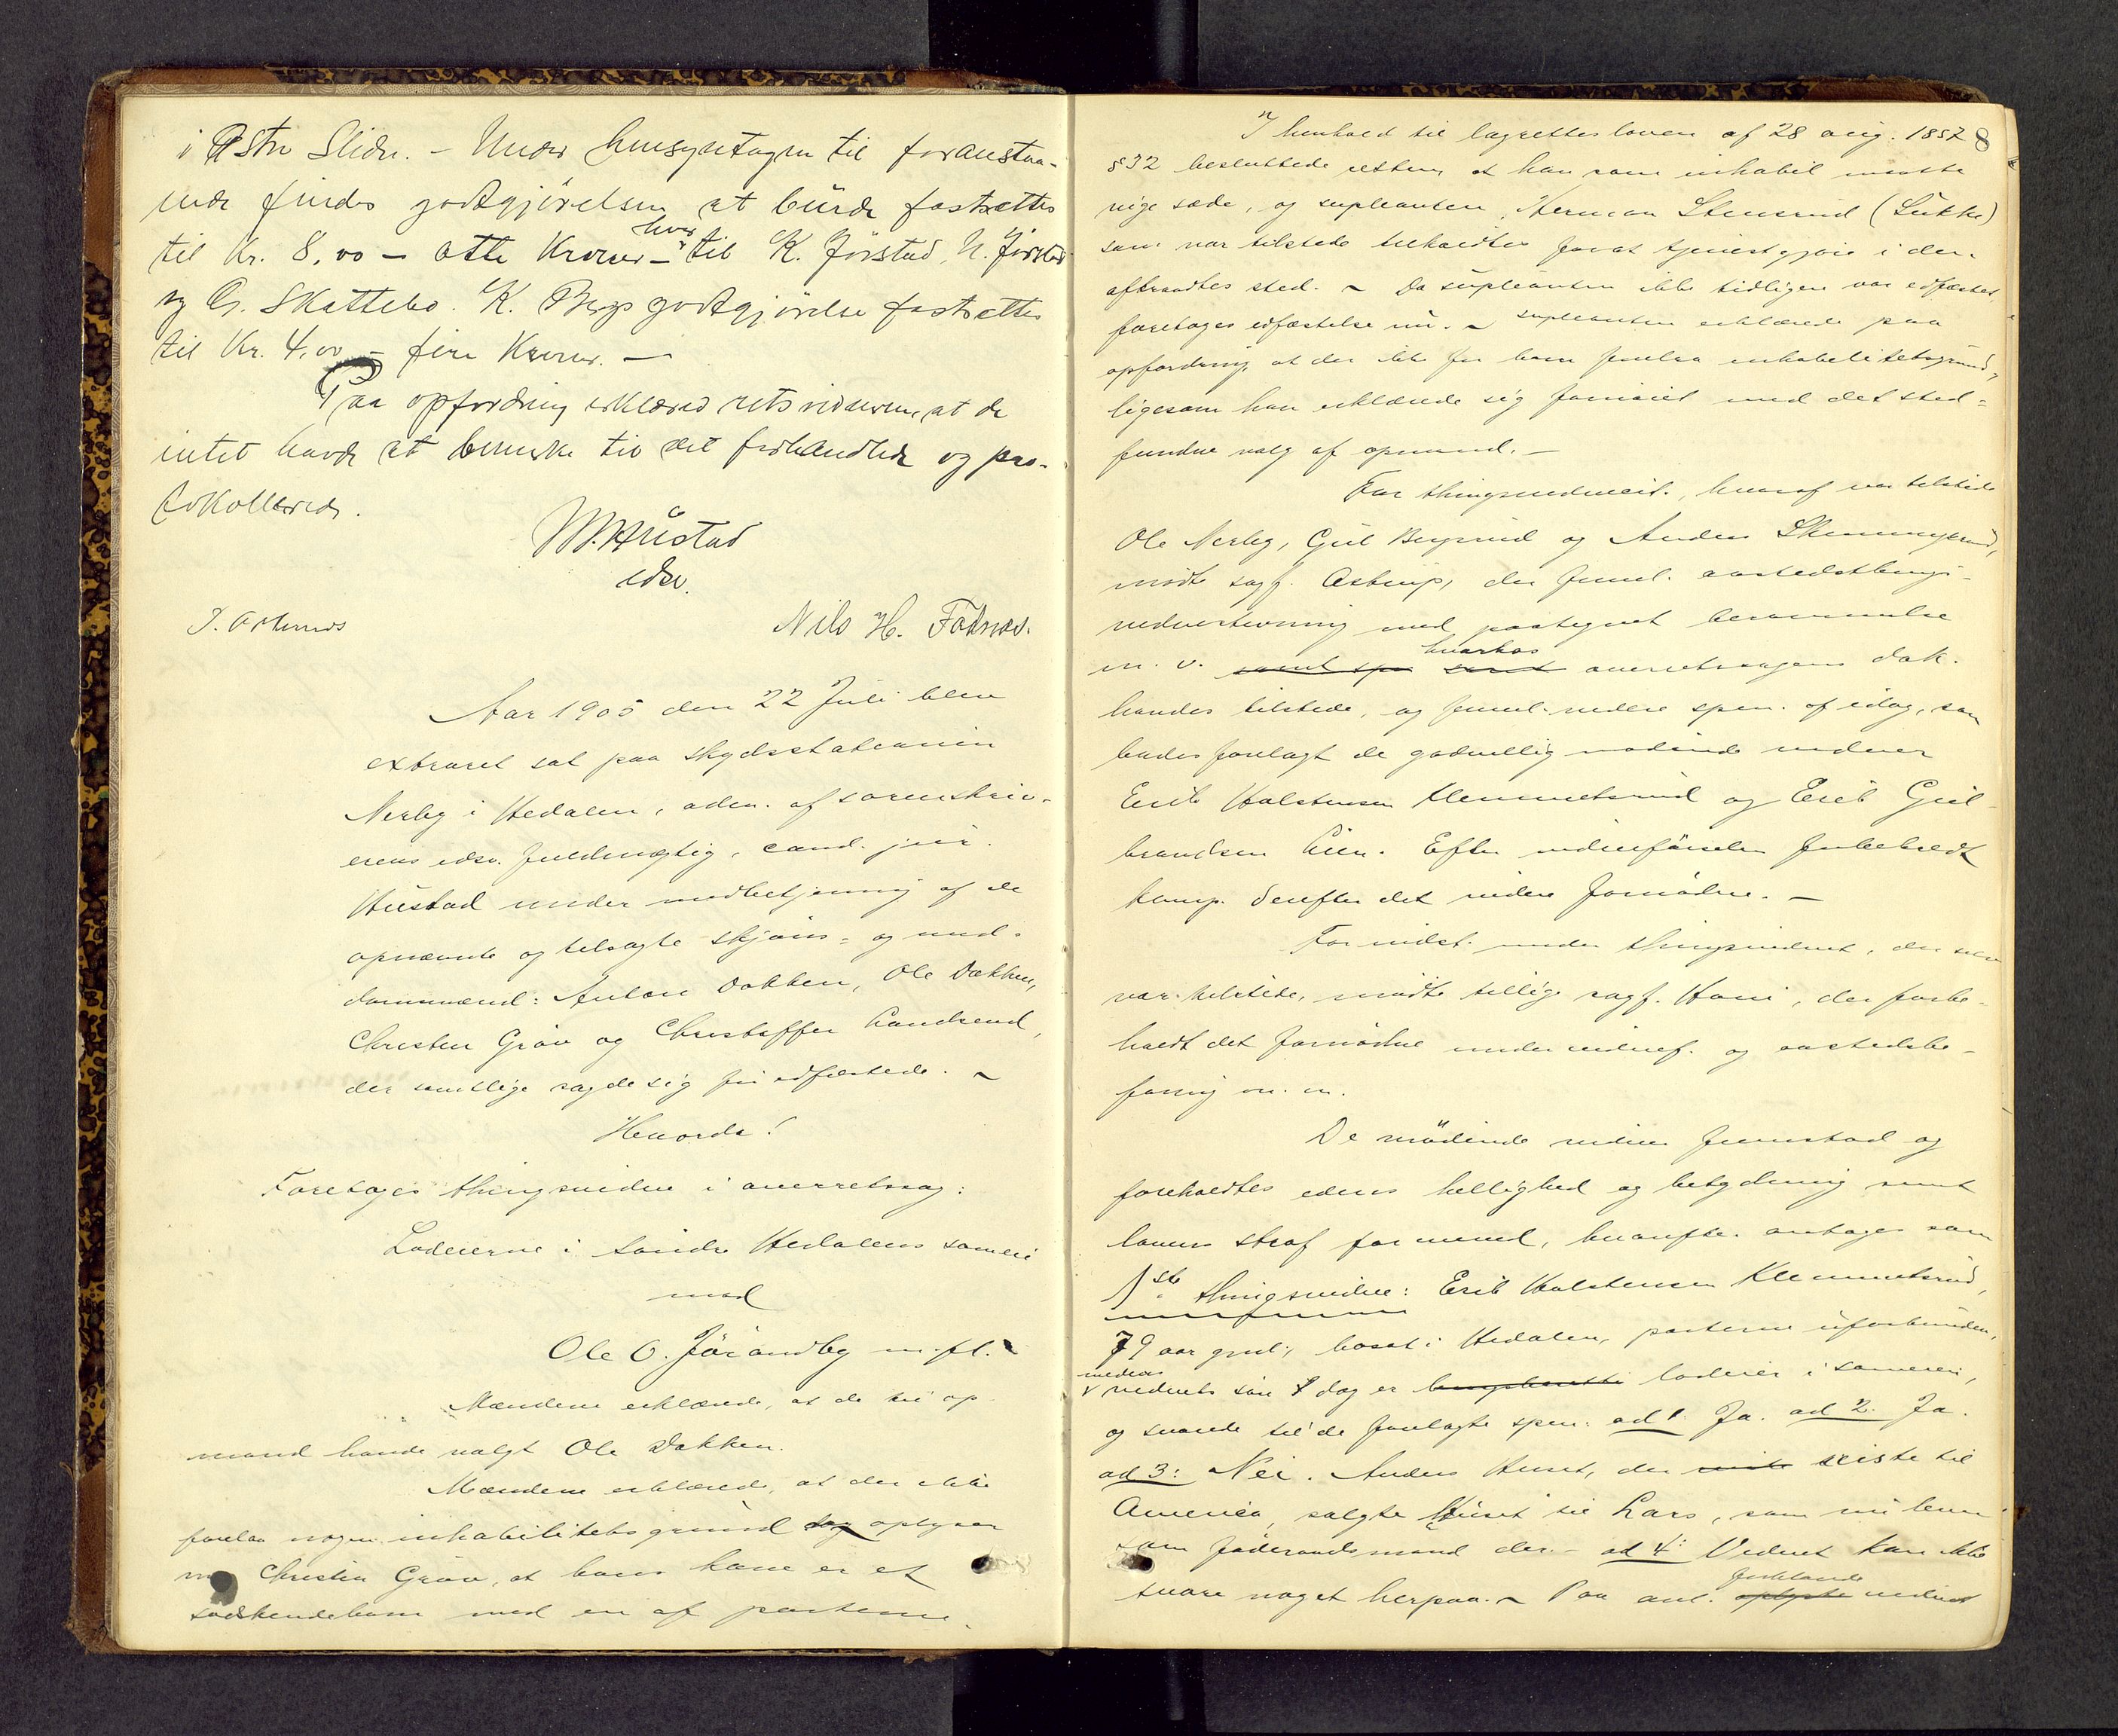 i Østre Slidre. – Under hensyntagen til foranstaa-
ende findes godtgjörelsen at burde fastsættes
til Kr. 8,00 – otte Kroner – hver til K. Jörstad, N. Jörstad
og G. Skattebo. K. Bergs godtgjörelse fastsættes
til Kr. 4,00 – fire Kroner. –
Paa opfordring erklæred retsvidnerne, at de
intet havde at bemerke til det forhandlede og pro-
tokollerede.
M. Hustad
edsv.
Nils H. Fodnæs.
Aar 1905 den 22 Juli blev
extraret sat paa skydsstationen
Nerby i Hedalen, adm. af sorenskriv-
erens edsv. fuldmægtig, cand. jur.
Hustad under medbetjening af de
opnævnte og tilsagte skjöns- og med-
domsmænd: Anton Dokken, Ole Dokken,
Christen Gröv og Christoffer Landsend,
der samtlige sagde sig för edfæstede. ~
Hvorda!
Foretoges thingsvidne i aurretssag:
Lodeierne i Söndre Hedalens sameie
mod
Ole O. Jörandby m. fl. ~
Mændene erklærede, at de til op-
mand havde valgt Ole Dokken.
Mændene erklærede, at der ikke
forelaa nogen inhabilitetsgrund dog oplyser
Christen Gröv, at hans kone er et
södskendebarn med en af parterne.
8
I henhold til lagrettesloven af 28 aug. 1857
§32 besluttede retten, at han som inhabil maatte
vige sæde, og supleanten, Herman Stensrud (Lükke)
som var tilstede tilholdtes for at tjenestgjöre i den
aftraadtes sted. ~ Da supleanten ikke tidligere var edfæstet,
foretoges edfæstelse nu. ~ Supleanten erklærede paa
opfordring, at der ikke for ham forelaa inhabilitetsgrund,
ligesom han erklærede sig fornöiet med det sted-
fundne valg af opmand. –
For thingsvidneits., hvoraf var tilstede
Ole Nerby, Gul Bergsrud og Anders
mödte sagf. Astrup, der freml. aastedsthings-
vidnestevning med paategnet berammelse
m. v. hvorhos aurretssagens dok.
havdes tilstede, og freml. videre spm. af idag, som
bades forelagt de godvillig mödende vidner
Erik Halstensen Klemmetsrud og Erik Gul-
brandsen Lien. Efter vidneförselen forbeholdt
komp. derefter det videre fornödne. –
For indst. under thingsvidnet, der selv
var tilstede, mödte tillige sagf. Hove, der forbe-
holdt det fornödne under vidnef. og aastedsbe-
faring m. m.
De mödende vidner fremstod og
foreholdtes edens hellighed og betydning samt
lovens straf for mened, hvorefter antoges som
1ste thingsvidne: Erik Halstensen Klemmetsrud,
79 aar gml., bosat i Hedalen, parterne uforbunden,
medens vidnets sön dog er lodeier i sameiet,
og svarede til de forelagte spm. ad 1. Ja. ad 2. Ja.
ad 3: Nei. Anders Huset, der reiste til
America, solgte Huset til Lars, som nu lever
som föderaadsmand der. – ad 4: Vidnet kan ikke
svare noget herpaa. ~ Paa anl. forklarede vidnet